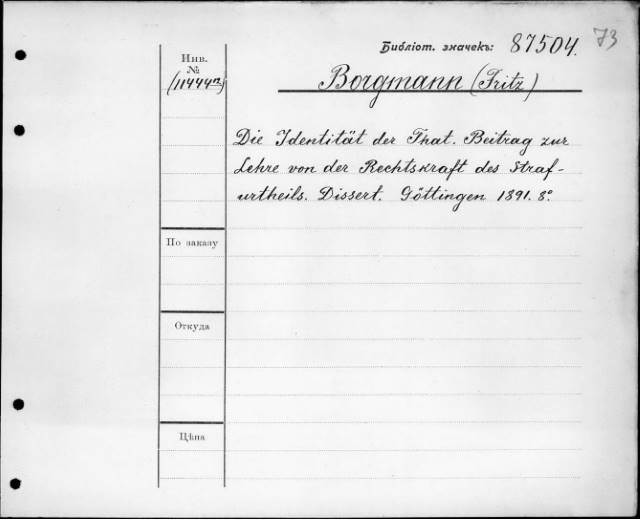 Библіот. значекъ: 87504. 73
Инв.
№
(11444a)
Borgmann (Fritz)
Die Identität der That. Beitrag zur
Lehre von der Rechtskraft des Straf-
urtheils. Dissert. Göttingen 1891. 8º.
По заказу
Откуда
Цѣна